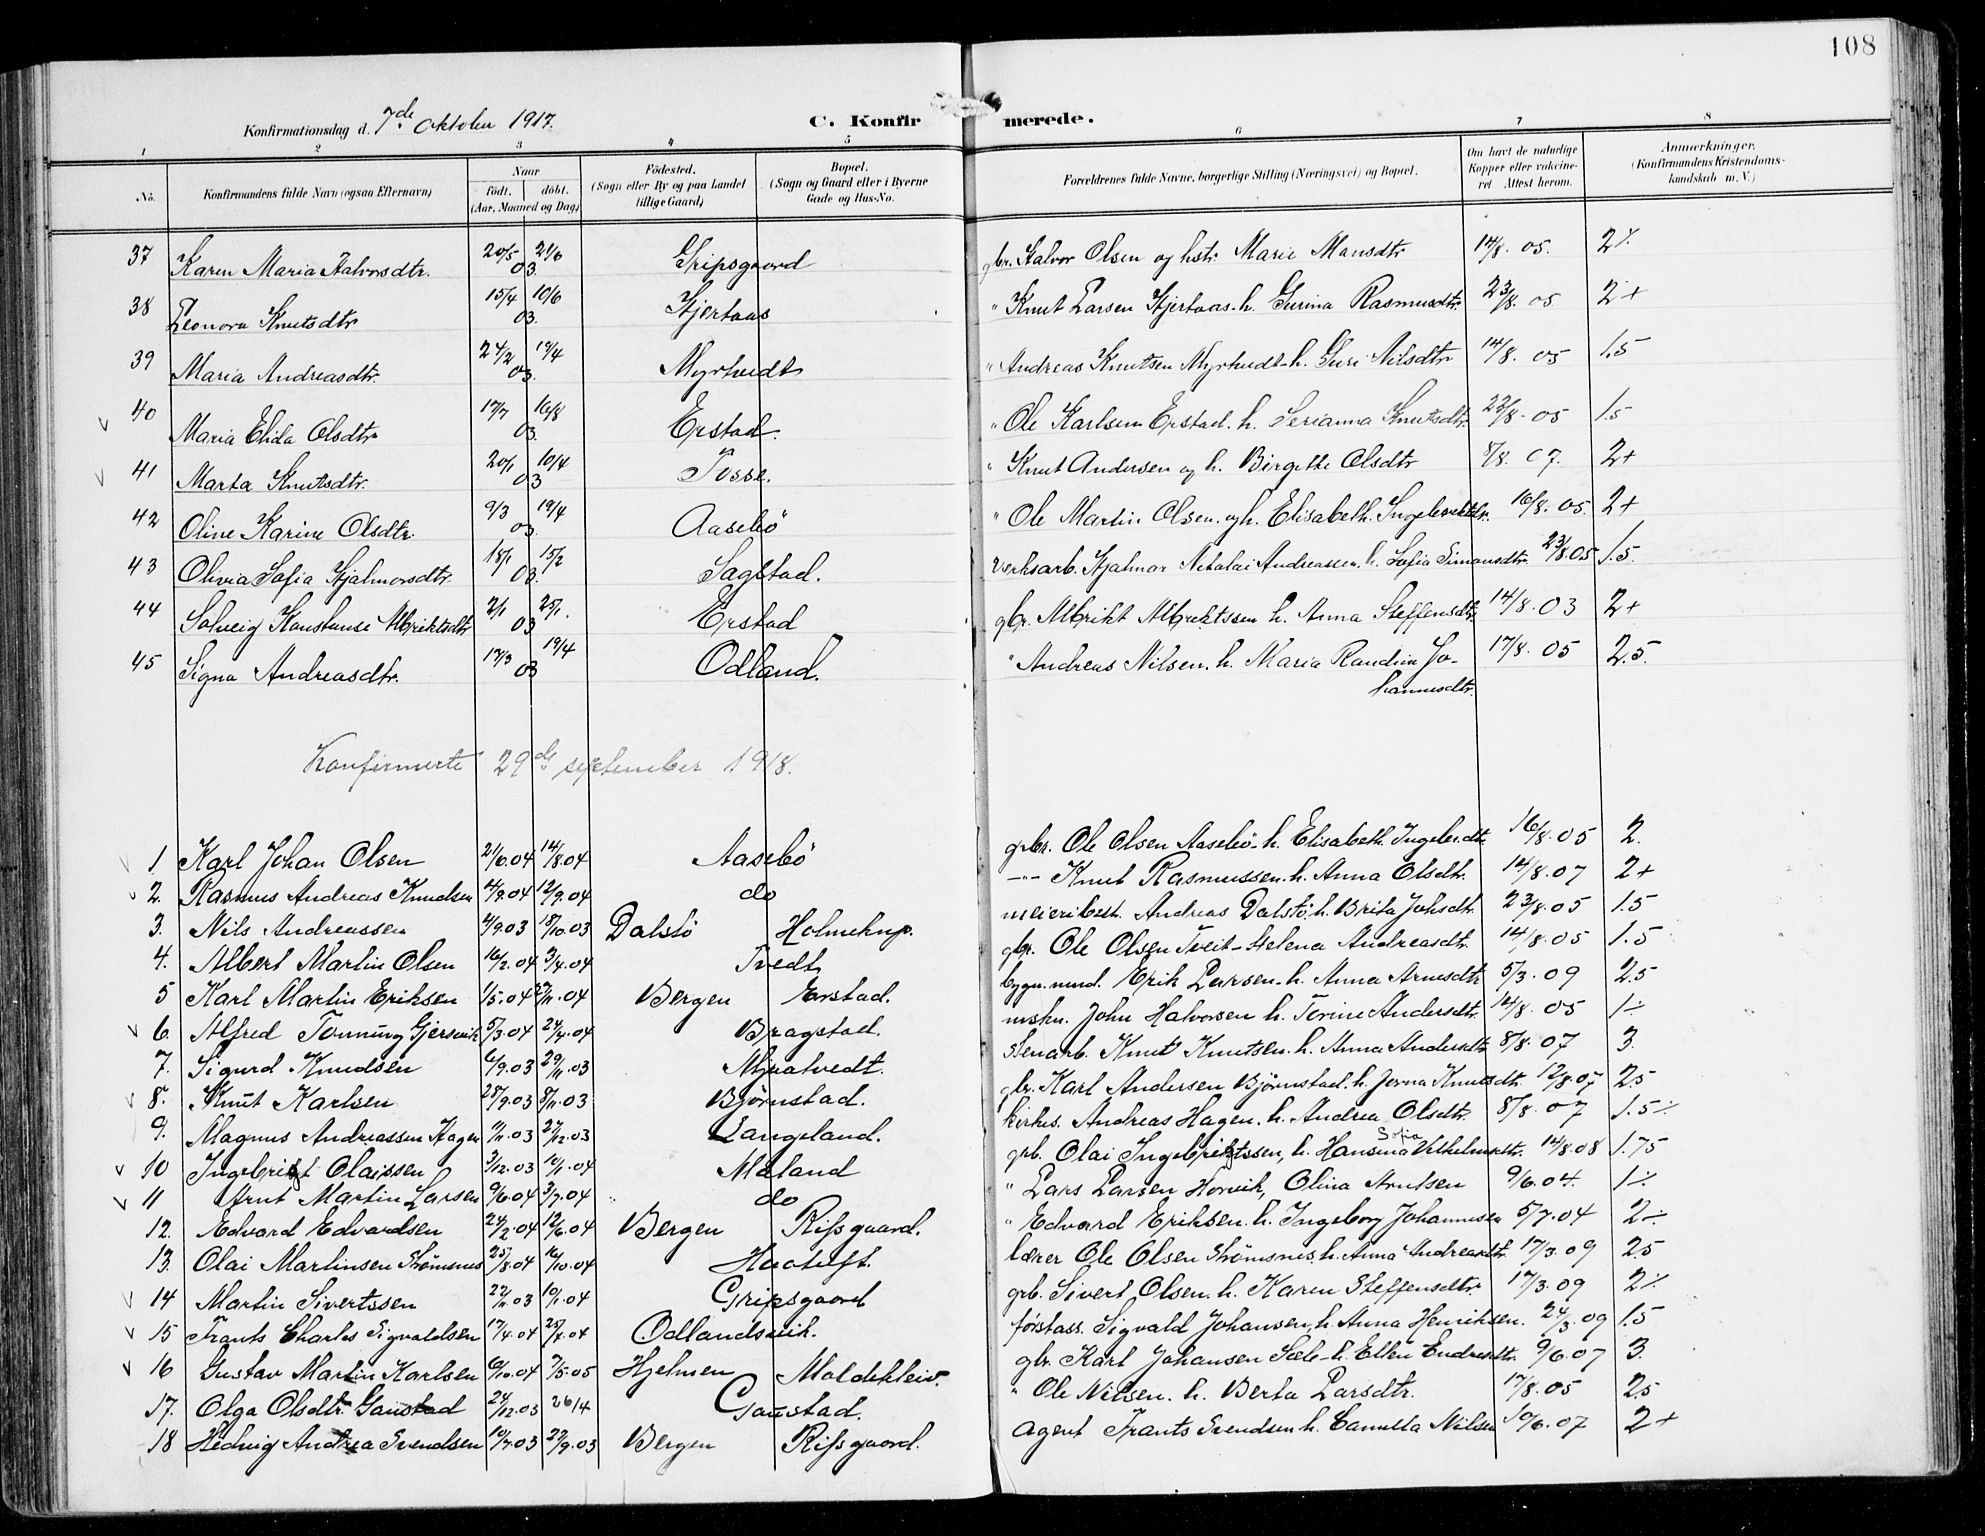 108
Konfirmationsdag d. 7de Oktober 1917.
C. Konfirmerede.
1 2 3 4 5 6 7 8
No.
Konfirmandens fulde Navn (ogsaa Efternavn)
Naar
født. døbt.
(Aar, Maaned og Dag)
Fødested.
(Sogn eller By og paa Landet
tillige Gaard)
Bopæl.
(Sogn og Gaard eller i Byerne
Gade og Hus-No.
Forældrenes fulde Navne, borgerlige Stilling (Næringsvei) og Bopæl.
Om havt de naturlige
Kopper eller vakcine-
ret Attest herom.
Anmærkninger,
(Konfirmandens Kristendoms-
kundskab m. V.)
37 Karen Maria Halvorsdtr. 20/5 21/6 03 Gripsgaard gbr. Halvor Olsen og hstr. Marie Mansdtr 14/8. 05. 2%
38 Leonora Knutsdtr 15/4 10/6 03. Hjertaas " Knut Larsen Hjertaas. h. Gurina Rasmusdtr. 23/8. 05 2+
39 Maria Andreasdtr. 24/2 19/4 03. Myrtvedt " Andreas Knutsen Myrtvedt. h. Guri Nilsdtr 14/8. 05 1.5
40 Maria Elida Olsdtr 17/7 16/8 03. Erstad. " Ole Karlsen Erstad. h. Serianna Knutsdtr 23/8. 05 1.5
41 Marta Knutsdtr. 20/1 10/4 03 Fosse. " Knut Andersen og h. Birgitte Olsdtr 8/8. 07. 2+
42 Oline Karine Olsdtr. 9/3 19/4 03 Aasebö " Ole Martin Olsen. og h. Elisabeth. 16/8. 05. 2+
43 Olivia Sofia Hjalmarsdtr. 18/1 15/2 03. Sagstad. verksarb. Hjalmar Nikolai Andreassen. h. Sofia Simonsdtr. 23/8.05 1.5.
44 Solveig Konstanse Albriktsdtr 2/1 25/1. 03 Erstad gbr. Albrikt Albriktssen h. Anna Steffensdtr 14/8. 03 2+
45 Signa Andreasdtr. 17/3 19/4 03 Odland. " Andreas Nilsen. h. Maria Randine Jo- 17/8. 05 2.5.
hannesdtr.
Konfirmerte 29de september 1918.
1 Karl Johan Olsen 21/6.04 14/8.04 Aasebö gbr. Ole Olsen Aasebö. h. Elisabeth 16/8.05 2.
2. Rasmus Andreas Knudsen 4/9.04 12/9.04 do -"- Knut Rasmussen. h. Anna Olsdtr. 14/8.07 2+
3. Nils Andreassen 4/9.03 18/10.03 Dalstö meieribest. Andreas Dalstö. h. Brita Johsdtr. 23/8.05 1.5
4. Albert Martin Olsen 16/2.04 3/4.04 Tvedt gbr. Ole Olsen Tveit - Helena Andreasdtr. 14/8.05 1.5
5 Karl Martin Eriksen 1/5.04 27/11.04 Bergen Erstad. Erik Larsen. h. Anna Arnesdtr 5/3.09 2.5
6. Alfred Gjersvik 5/3.04 24/4.04 Bragstad. John Halvorsen h. Terine Andersdtr. 14/8.05 1÷
7. Sigurd Knudsen 6/9.03 29/11.03 Mjeatvedt. Stenarb. Knut Knutsen. h. Anna Andersdtr 8/8.07 3.
8. Knut Karlsen 28/9.03 8/11.03 Björnstad. gbr. Karl Andersen Björnstad. h. Knutsdtr. 12/8.07 2.5
9. Magnus Andreassen Hagen 11/11.03 27/12.03 Langeland. Andreas Hagen. h. Andrea Olsdtr. 8/8.07 1.5÷
10 Ingebrikt Olaissen 3/12.03 10/1.04 Mæland grb. Olai Ingebriktssen, h. Hansina Sofia Vilhelmsdtr. 14/8.08 1.75
11 Arnt Martin Larsen 9/6.04 3/7.04 do " Lars Larsen Horvik, Olina Arntsen 9/6.04. 1÷
12. Edvard Edvardsen 24/2.04 12/6.04 Bergen Rissgaard. " Edvard Eriksen. h. Ingeborg Johannesen 5/7.04 2÷
13. Olai Martinsen Strömsnes 25/8.04 16/10.04 Haatuft. lærer Ole Olsen Strömsnes. h. Anna Andreasdtr. 17/3.09 2.5
14 Martin Sivertssen 22/11.03 10/1.04 Gripsgaard grb. Sivert Olsen. h. Karen Steffensdtr. 17/3.09 2%
15 Frants Charles Sigvaldsen 17/4.04 25/4.04 Odlandsvik. Sigvald Johansen, h. Anna Henriksen. 24/3.09 1.5
16 Gustav Martin Karlsen 6/10.04 7/5.05 Hjelmen Moldekleiv. gbr. Karl Johansen Sæle. h. Ellen Endresdtr. 9/6.07 3.
17. Olga Olsdtr. Gaustad 24/12.03 26/4 Gaustad. " Ole Nilsen. h. Berta Larsdtr. 17/8.05 2.5
18 Hedvig Andrea Svendsen 10/7.03 27/9.03 Bergen Rissgaard. Agent Frants Svendsen h. Camilla Nilsen 10/6.07 2+